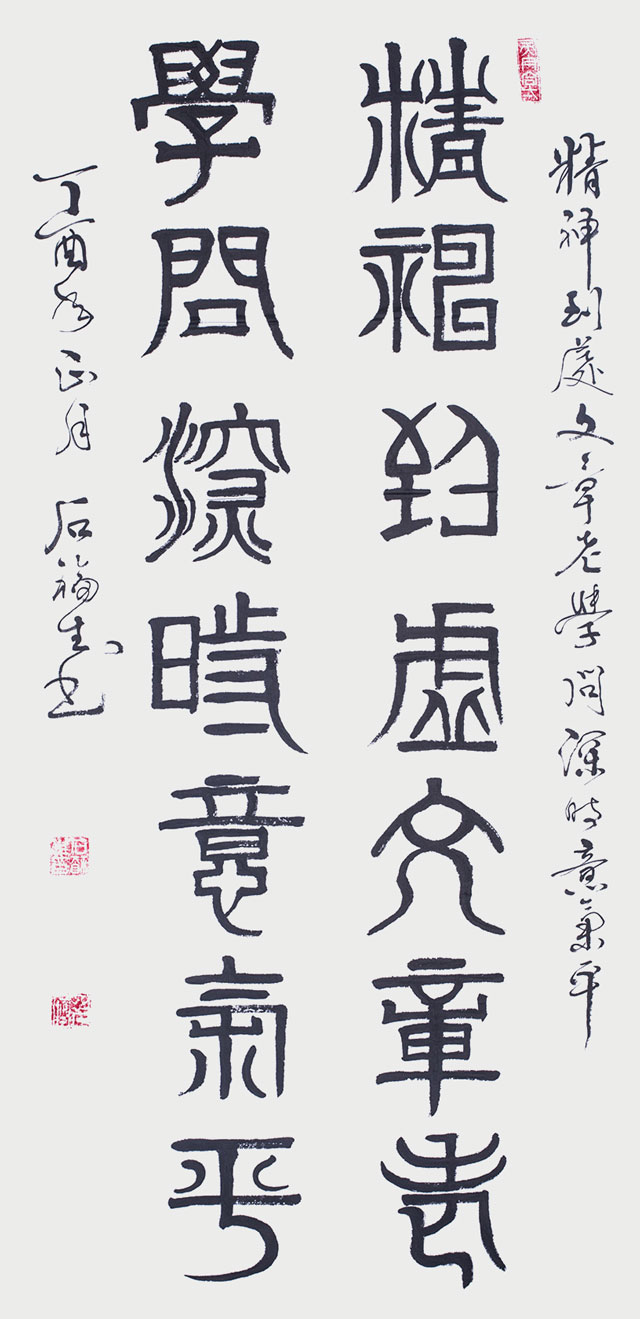 精神到處文章老學問深時意氣平
精神到處文章老
學問深時意氣平
丁酉年正月 石福书